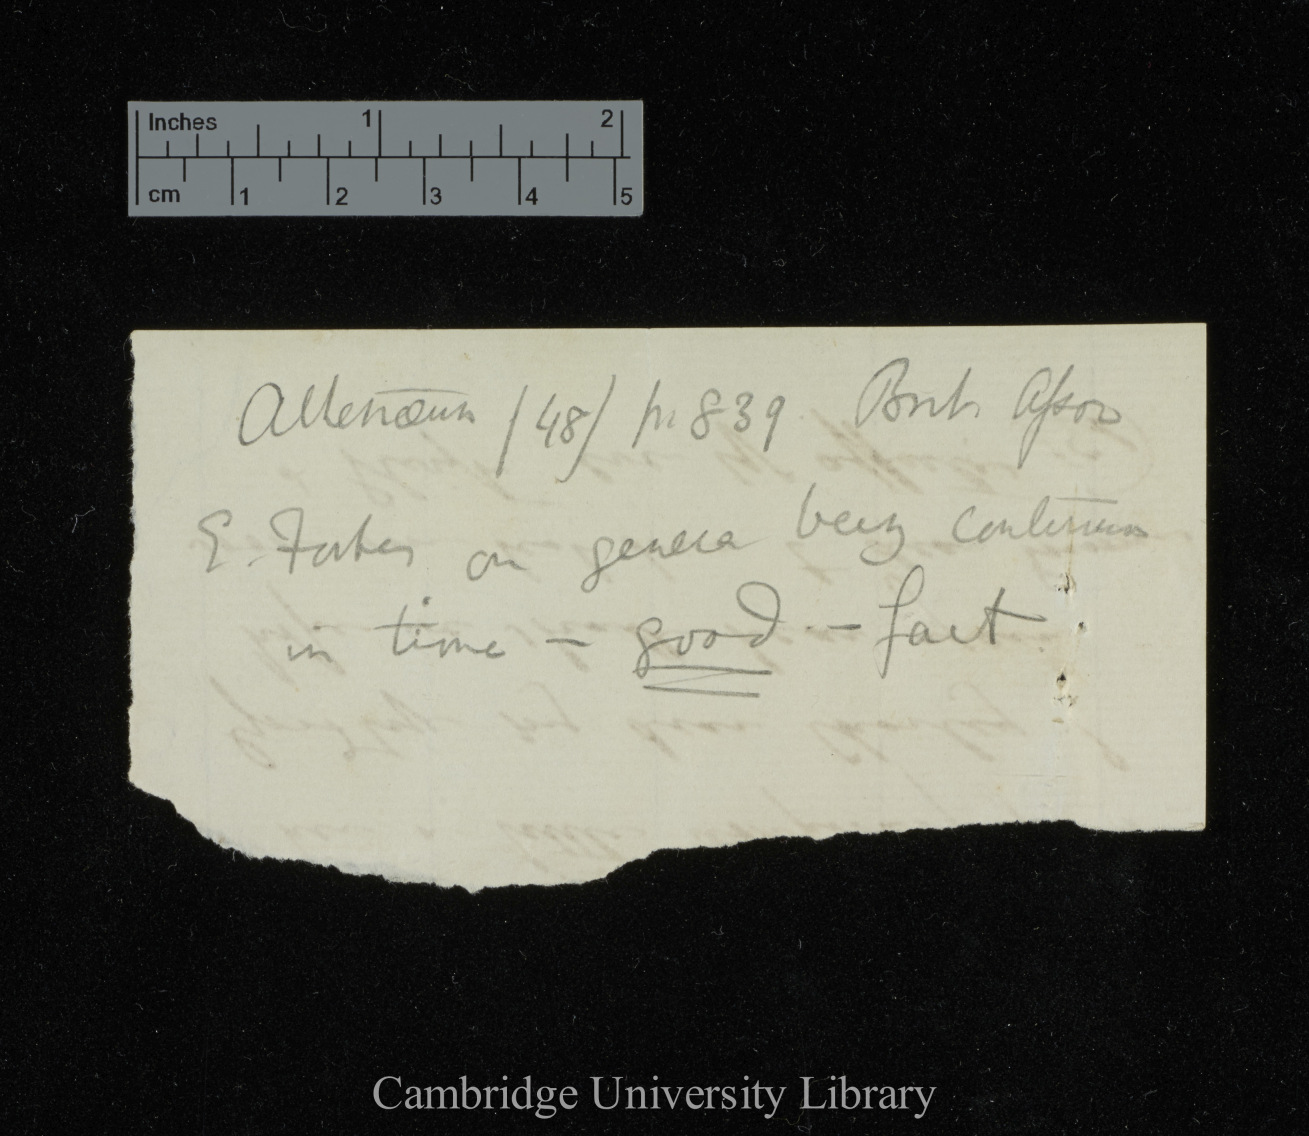 Inches 1 2
cm 1 2 3 4 5
Athenæum /48/ p. 839 Brit. Assoc
E. Forbes on genera being continuous
in time — good — fact
Cambridge University Library